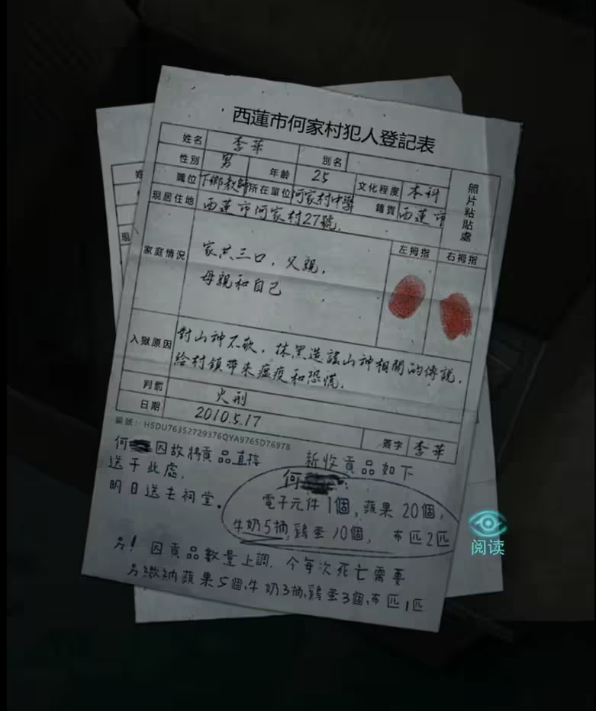 西蓮市何家村犯人登記表
姓名 李華 別名
性別 男 年齡 25 文化程度 本科
職位 下鄉教師 所在單位 何家村中學 籍貫 西蓮市
照片粘貼處
現居住地 西蓮市何家村27號.
家庭情況 家共三口,父親, 左拇指 右拇指
母親和自己
入獄原因 對山神不敬,抹黑造謠山神相關的傳說,
給村鎮帶來瘟疫和恐慌.
判前 火刑
日期 2010.5.17
編號: HSDU76352729376QYA9765D76978 簽字 李華
何 因故將貢品直接 新收貢品如下
送于此處, 何
明日送去祠堂. 電子元件1個,蘋果20個,
牛奶5抽,鷄蛋10個, 布匹2匹
另!因貢品數量上調.今每次死亡需要
另繳納蘋果5個,牛奶3抽,鷄蛋3個,布匹1匹
阅读